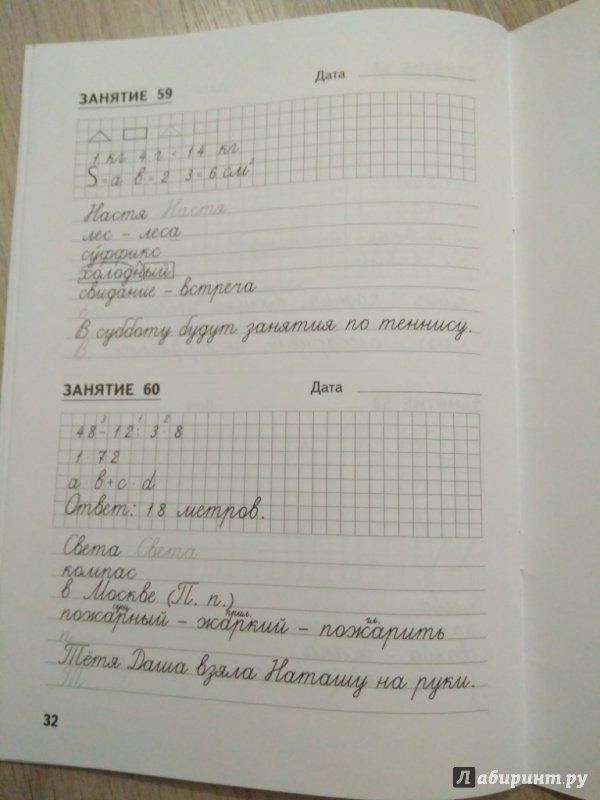 Дата
ЗАНЯТИЕ 59
1 кг 4 г < 14 кг
S = a · b = 2 · 3 = 6 см²
Настя Настя
лес – леса
суффикс
холодный
свидание – встреча
В субботу будут занятия по теннису.
В
ЗАНЯТИЕ 60 Дата
3 1 2
48 – 12 : 3 · 8
1 · 72
a · b + c · d
Ответ: 18 метров.
Света Света
компас
в Москве (П. п.)
сущ. прил. гл.
пожарный – жаркий – пожарить
п
Тётя Даша взяла Наташу на руки.
Т
32
Лабиринт.ру